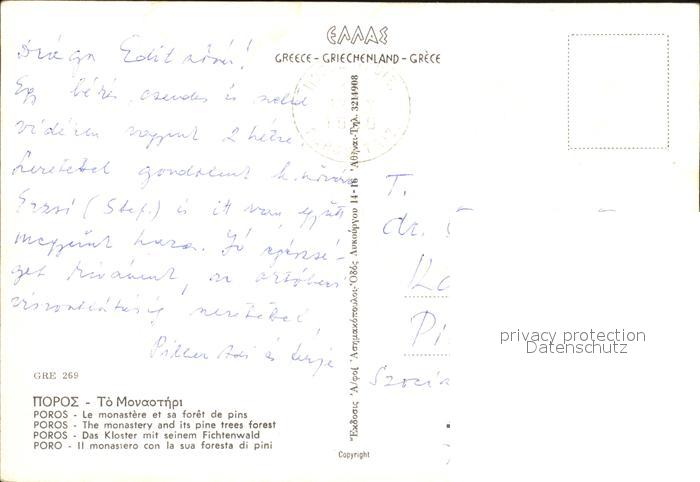 ΕΛΛΑΣ
GREECE - GRIECHENLAND - GRÈCE
Drága Edit nővér!
Egy békés, csendes és szelid
vidéken vagyunk 2 hétre.
Szeretettel gondolunk
Erzsi (Stef.) is itt van, együtt
megyünk haza. Jó egészsé-
get kívánunk, az októberi
viszontlátásig szeretettel
Piller Adi és
T.
dr.
Ko
Pi
Szocia
privacy protection
Datenschutz
"Εκδοσις 'Α/φοί 'Ασημακόπουλοι-Όδός Λυκούργου 14-16 'Αθήναι-Τηλ. 3214908
GRE 269
ΠΟΡΟΣ - Τὸ Μοναστήρι
POROS - Le monastère et sa forêt de pins
POROS - The monastery and its pine trees forest
POROS - Das Kloster mit seinem Fichtenwald
PORO - Il monasiero con la sua foresta di pini
Copyright